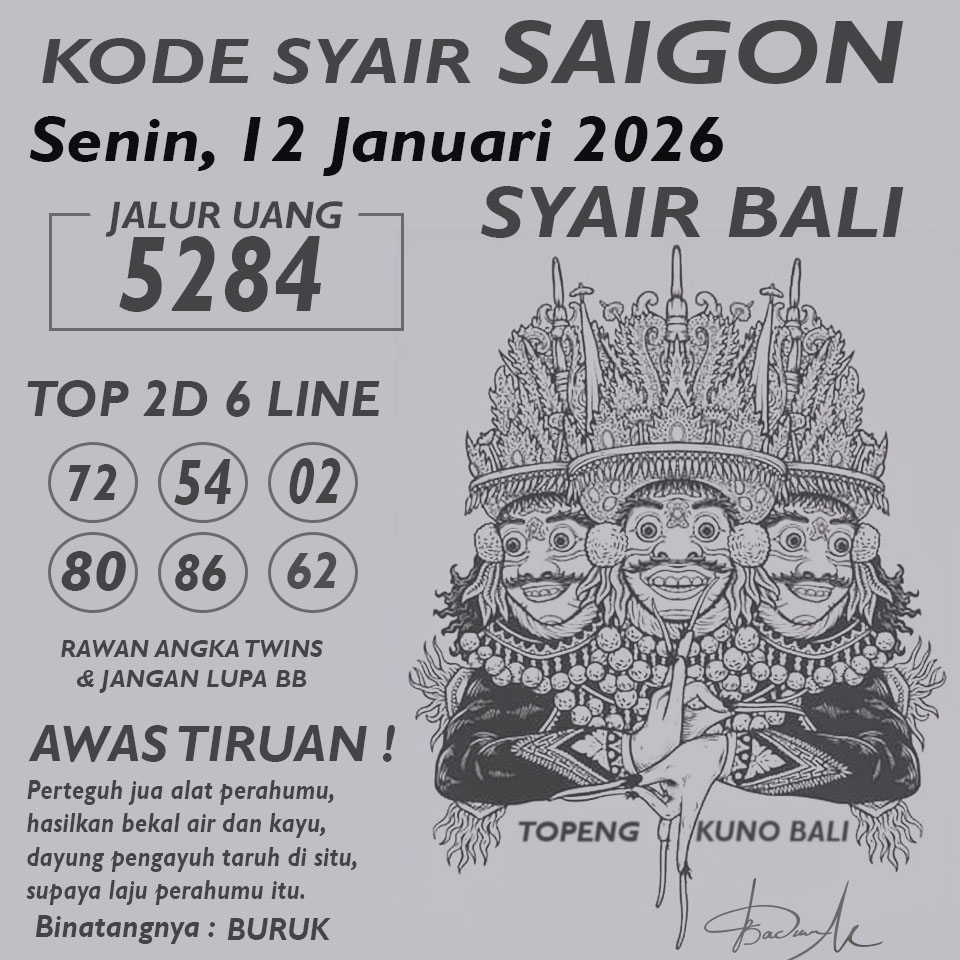 KODE SYAIR SAIGON
Senin, 12 Januari 2026
SYAIR BALI
JALUR UANG
5284
TOP 2D 6 LINE
72 54 02
80 86 62
RAWAN ANGKA TWINS
& JANGAN LUPA BB
AWAS TIRUAN !
Perteguh jua alat perahumu,
hasilkan bekal air dan kayu,
dayung pengayuh taruh di situ,
supaya laju perahumu itu.
Binatangnya : BURUK
TOPENG KUNO BALI